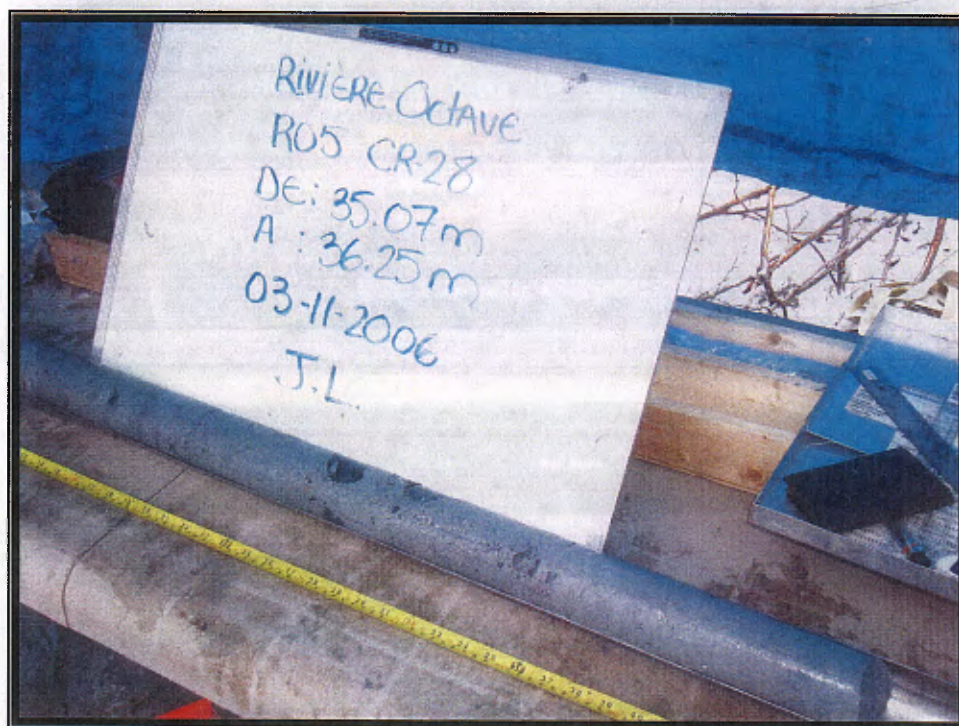 RIVIERE OCTAVE
RO5 CR-28
DE: 35.07m
A : 36.25m
03-11-2006
J.L.